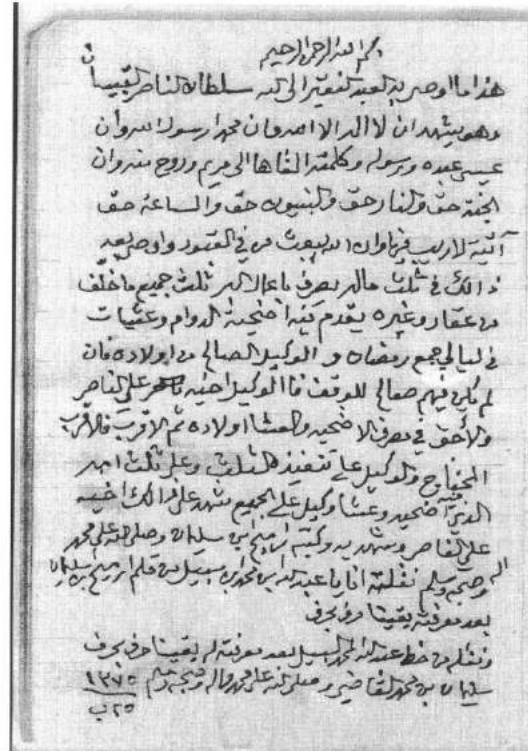 بسم الله الرحمن الرحيم
هذا ما اوصى به العبد الفقير الى الله سلطان الناصر
وهو يشهد ان لا اله الا الله وان محمد ارسول الله وان
عيسى عبده ورسوله وكلمته القاها الى مريم وروح منه وان
الجنة حق والنار حق والنبيون حق والساعة حق
آتية لاريب فيها وان الله يبعث من في القبور واوصى بعد
ذالك في ثلث ماله يصرف باعمال البر ثلث جميع ما خلف
من عقار وغيره يقدم فيه اضحية الدوام وعشيات
في ليالي جمع رمضان و الوكيل الصالح من اولاده فان
لم يكن فيهم صالح للوقف فا الوكيل اخيه علي الناصر
والأحق في مصرف الاضحيه والعشا اولاده ثم الاقرب فالأقرب
المحتاج والوكيل على تنفيذ الثلث وعلى ثلث امه
الذي فيه اضحيه وعشا وكيل على الجميع شهد على ذالك اخيه
علي الناصر وشهد به وكتبه ابراهيم ابن سليمان وصلى الله على محمد
اله وصحبه وسلم نقلته انا يا عبد الله ابن محمد ابن سبيل من قلم ابراهيم بن سليمان
بعد معرفته يقينا حرف بحرف
ونقله من خط عبد الله المحمد السبيل بعد معرفته له يقينا حرف بحرف
سليمان بن محمد القاضي وصلى الله على محمد واله وصحبه وسلم ١٣٧٥
٢٥ ب